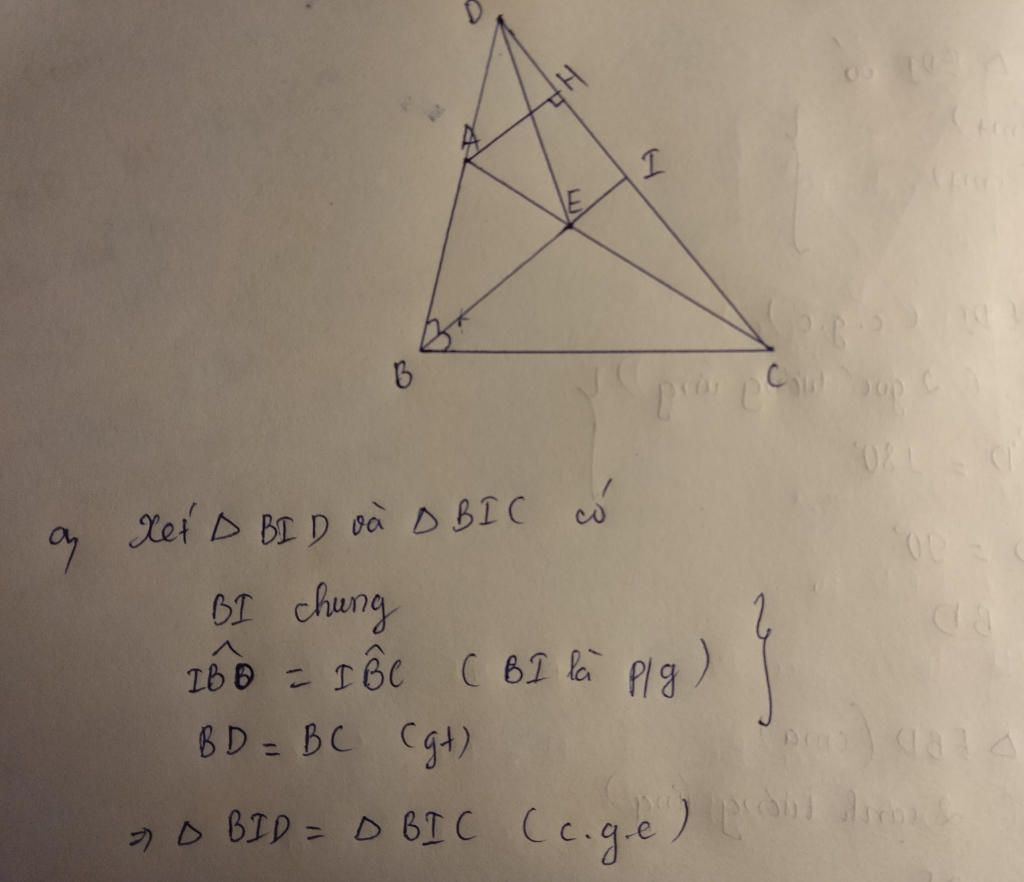 D
H
A
I
E
B
C
a, Xét Δ BID và Δ BIC có
BI chung
IB̂D = IB̂C ( BI là p/g )
BD = BC (gt)
⇒ Δ BID = Δ BIC ( c.g.c )